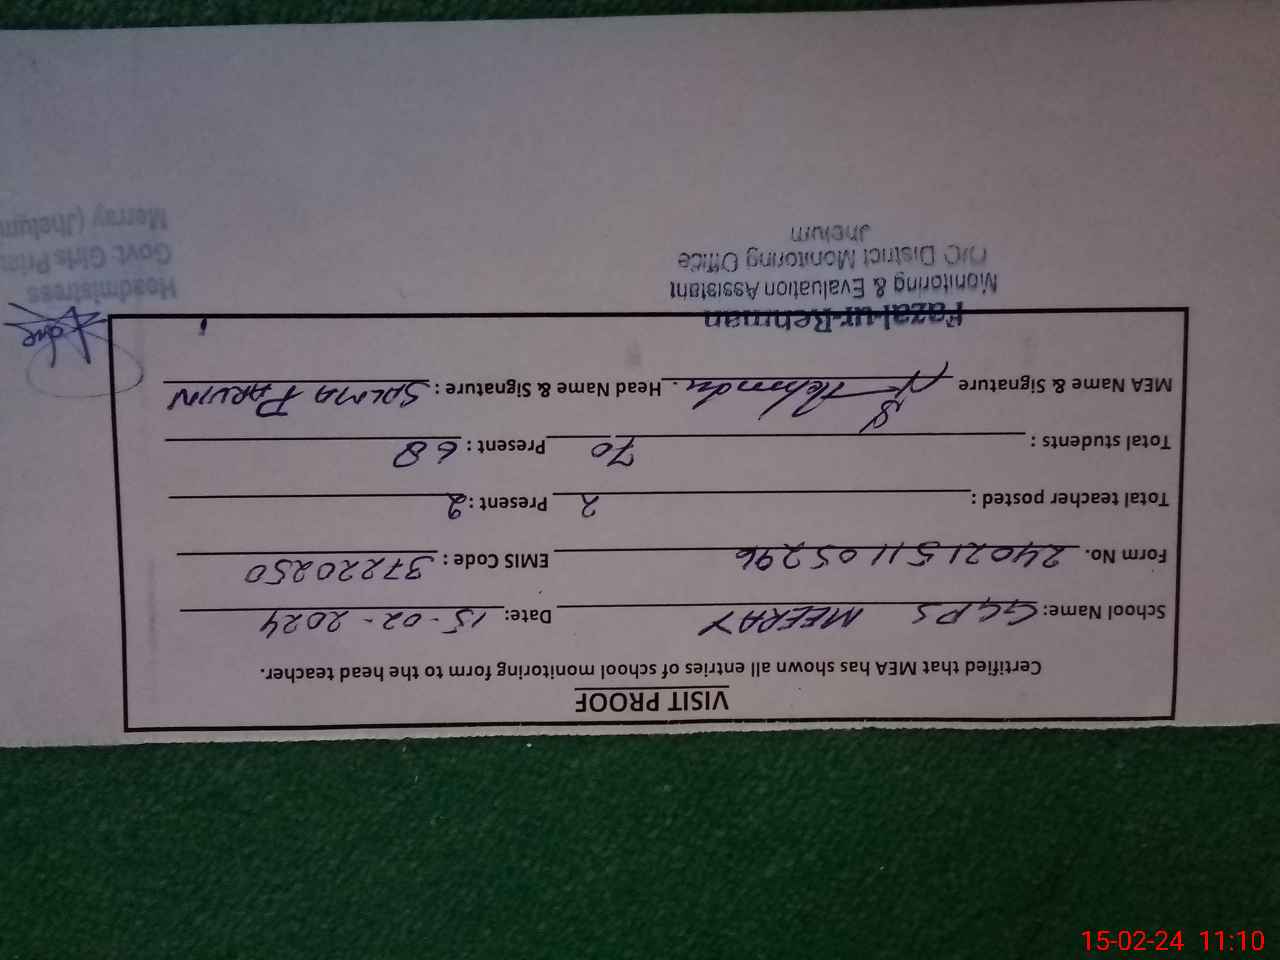 VISIT PROOF
Certified that MEA has shown all entries of school monitoring form to the head teacher.
School Name: GGPS MEERAY Date: 15-02-2024
Form No. 2402151105296 EMIS Code: 37220250
Total teacher posted: 2 Present: 2
Total students: 70 Present: 68
MEA Name & Signature F Rehman. Head Name & Signature: SALMA PARVIN
Fazal-ur-Rehman
Monitoring & Evaluation Assistant
O/C District Monitoring Office
Jhelum
Headmistress
Govt. Girls
Merray (Jhelum
15-02-24 11:10